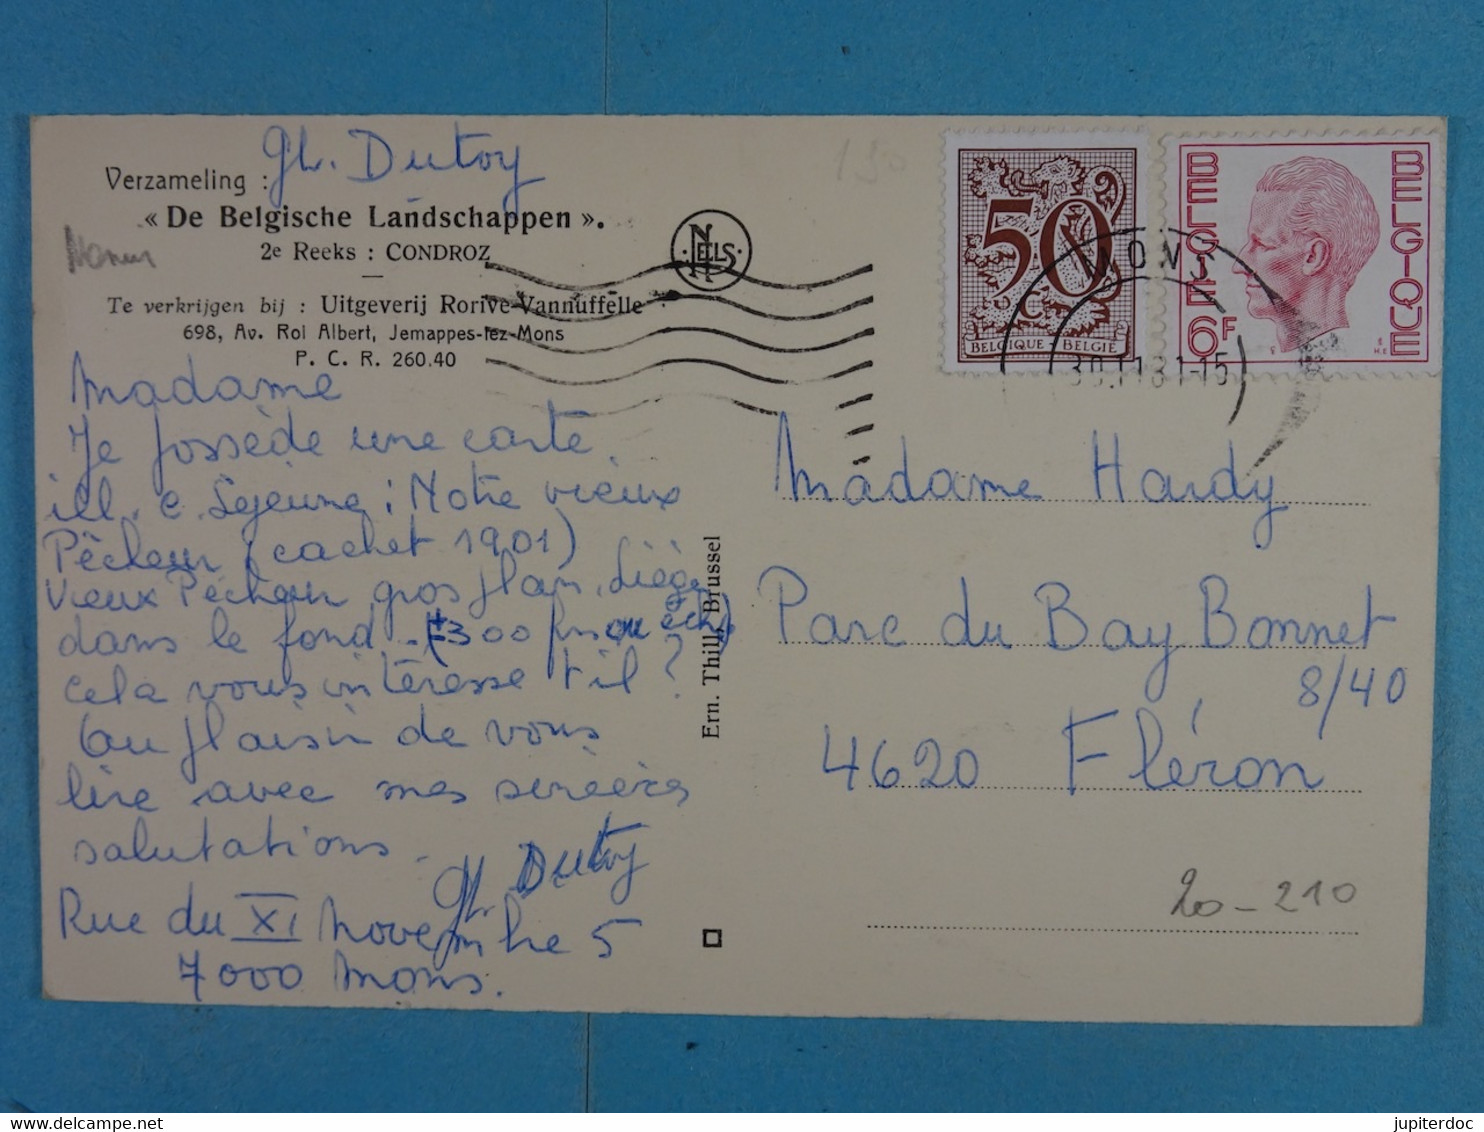 Gh. Dutoy
Verzameling :
« De Belgische Landschappen ».
2e Reeks : CONDROZ
Te verkrijgen bij : Uitgeverij Rorive-Vannuffelle
698, Av. Roi Albert, Jemappes-lez-Mons
P. C. R. 260.40
NELS
130
50
C
BELGIQUE - BELGIË
BELGIE
BELGIQUE
6F
MONS
30.11.81-15
Madame
Je possède une carte
ill. c. Sejeune : Notre vieux
Pêcheur (cachet 1901)
Vieux Pêcheur gros plan, Liège
dans le fond - (± 300 frs ou éch)
cela vous intéresse t il ?
Au plaisir de vous
lire avec mes sincères
salutations.
Gh. Dutoy
Rue du XI Novembre 5
7000 Mons.
Ern. Thill, Brussel
Madame Hardy
Parc du Bay Bonnet
8/40
4620 Fléron
20-210
www.delcampe.net
jupiterdoc